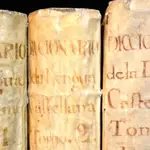 ARIO
gua
na
1.
DICIONARIO
dela lengua
Castellana
Tomo. 2.
DICCIO
de la L
Caste
Tom